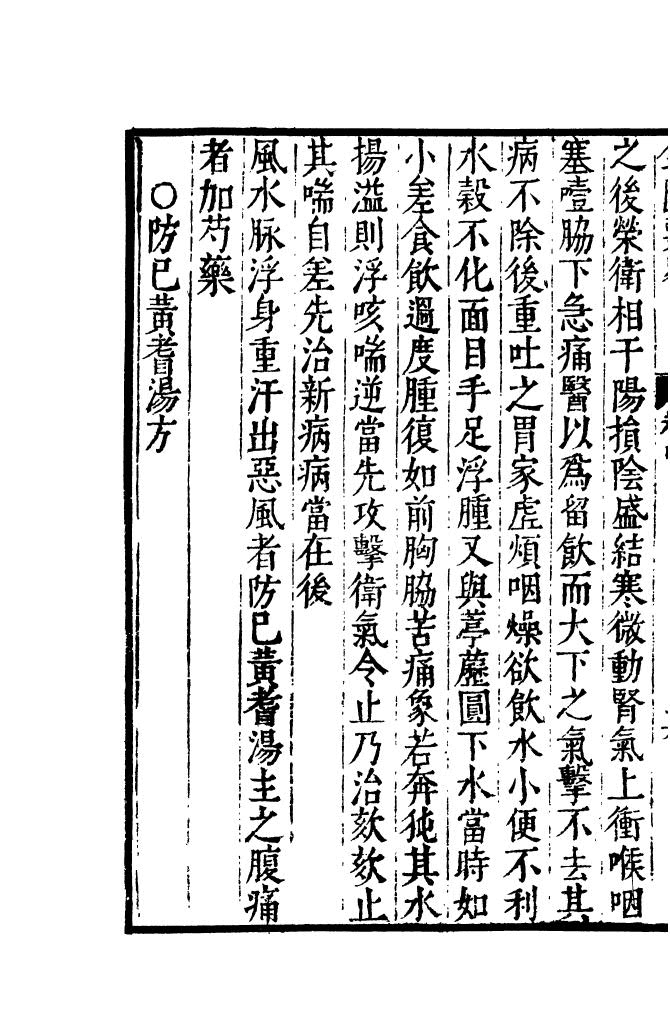 之後榮衛相干陽損陰盛結寒微動腎氣上衝喉咽
塞噎脇下急痛醫以爲留飲而大下之氣擊不去其
病不除後重吐之胃家虛煩咽燥欲飲水小便不利
水穀不化面目手足浮腫又與葶藶圓下水當時如
小差食飲過度腫復如前胸脇苦痛象若奔㹠其水
揚溢則浮咳喘逆當先攻擊衛氣令止乃治欬欬止
其喘自差先治新病病當在後
風水脉浮身重汗出惡風者防己黃耆湯主之腹痛
者加芍藥
○防己黃耆湯方